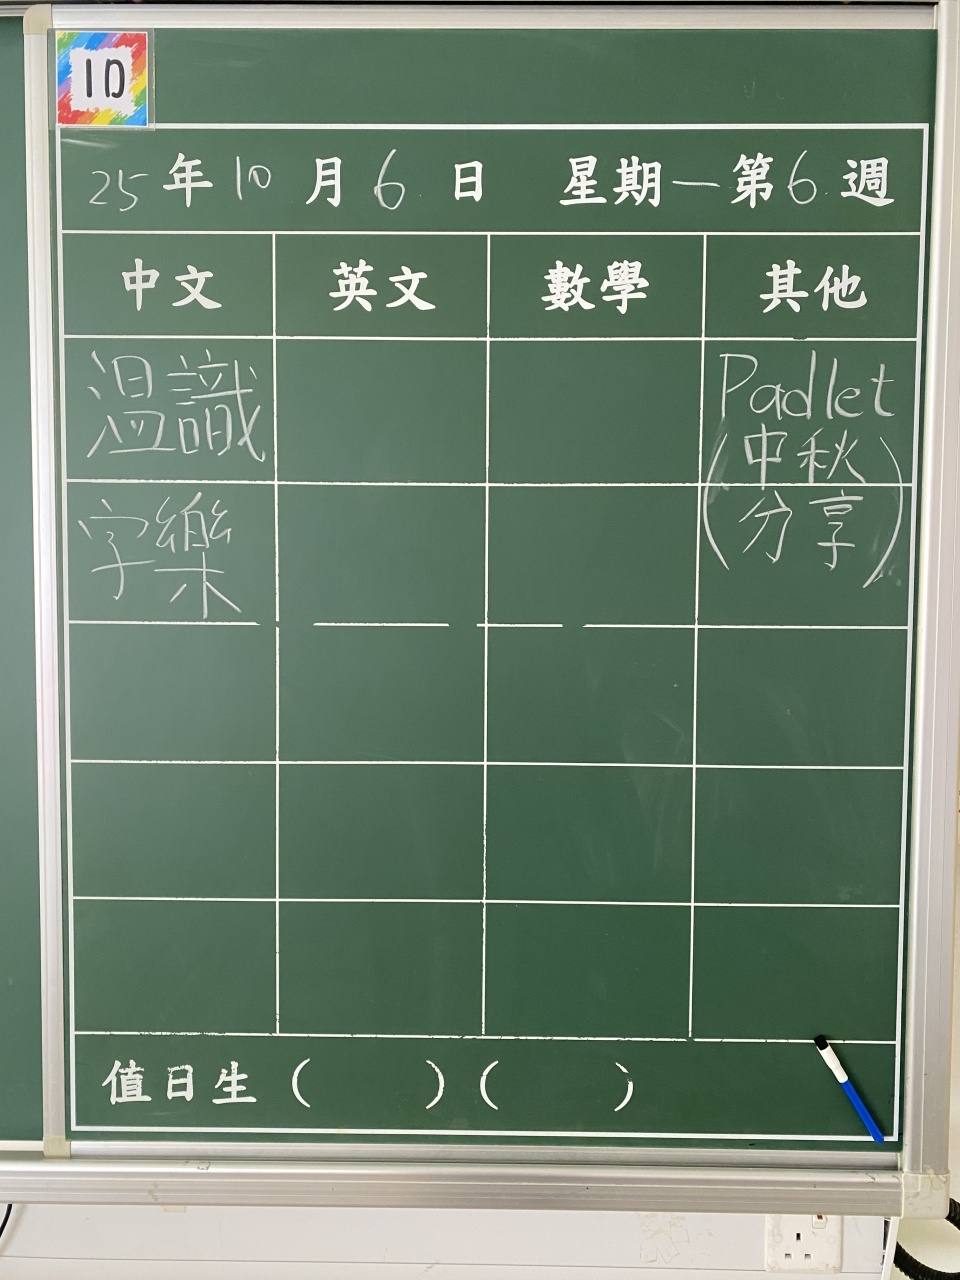 1D
25年10月6日 星期一第6週
中文 英文 數學 其他
溫識
字樂
Padlet
(中秋
分享)
值日生 ( ) ( )